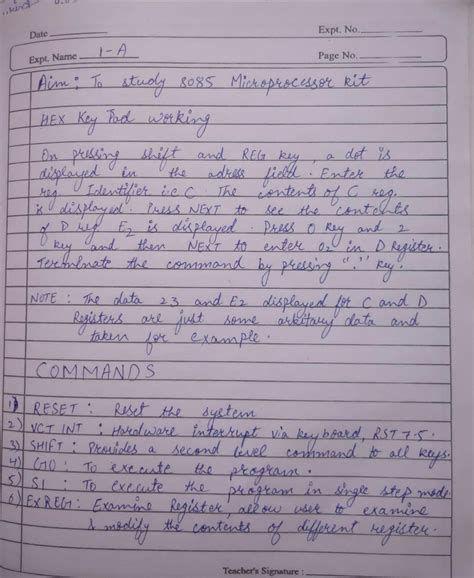 Date
Expt. No.
Expt. Name 1-A
Page No.
Aim : To study 8085 Microprocessor kit
HEX Key Pad working
On pressing shift and REG key, a dot is
displayed in the adress field. Enter the
reg. Identifier i.e C. The contents of C reg.
is displayed. Press NEXT to see the contents
of D reg. E2 is displayed. Press 0 Key and 2
key and then NEXT to enter 02 in D Register.
Terminate the command by pressing "." key.
NOTE : The data 23 and E2 displayed for C and D
Registers are just some arbitary data and
taken for example.
COMMANDS
1) RESET : Reset the system
2) VCT INT : Hardware interrupt via keyboard, RST 7.5.
3) SHIFT : Provides a second level command to all keys.
4) GO : To execute the program.
5) SI : To execute the program in single step mode
6) EXREG : Examine Register, allow user to examine
& modify the contents of different register.
Teacher's Signature :